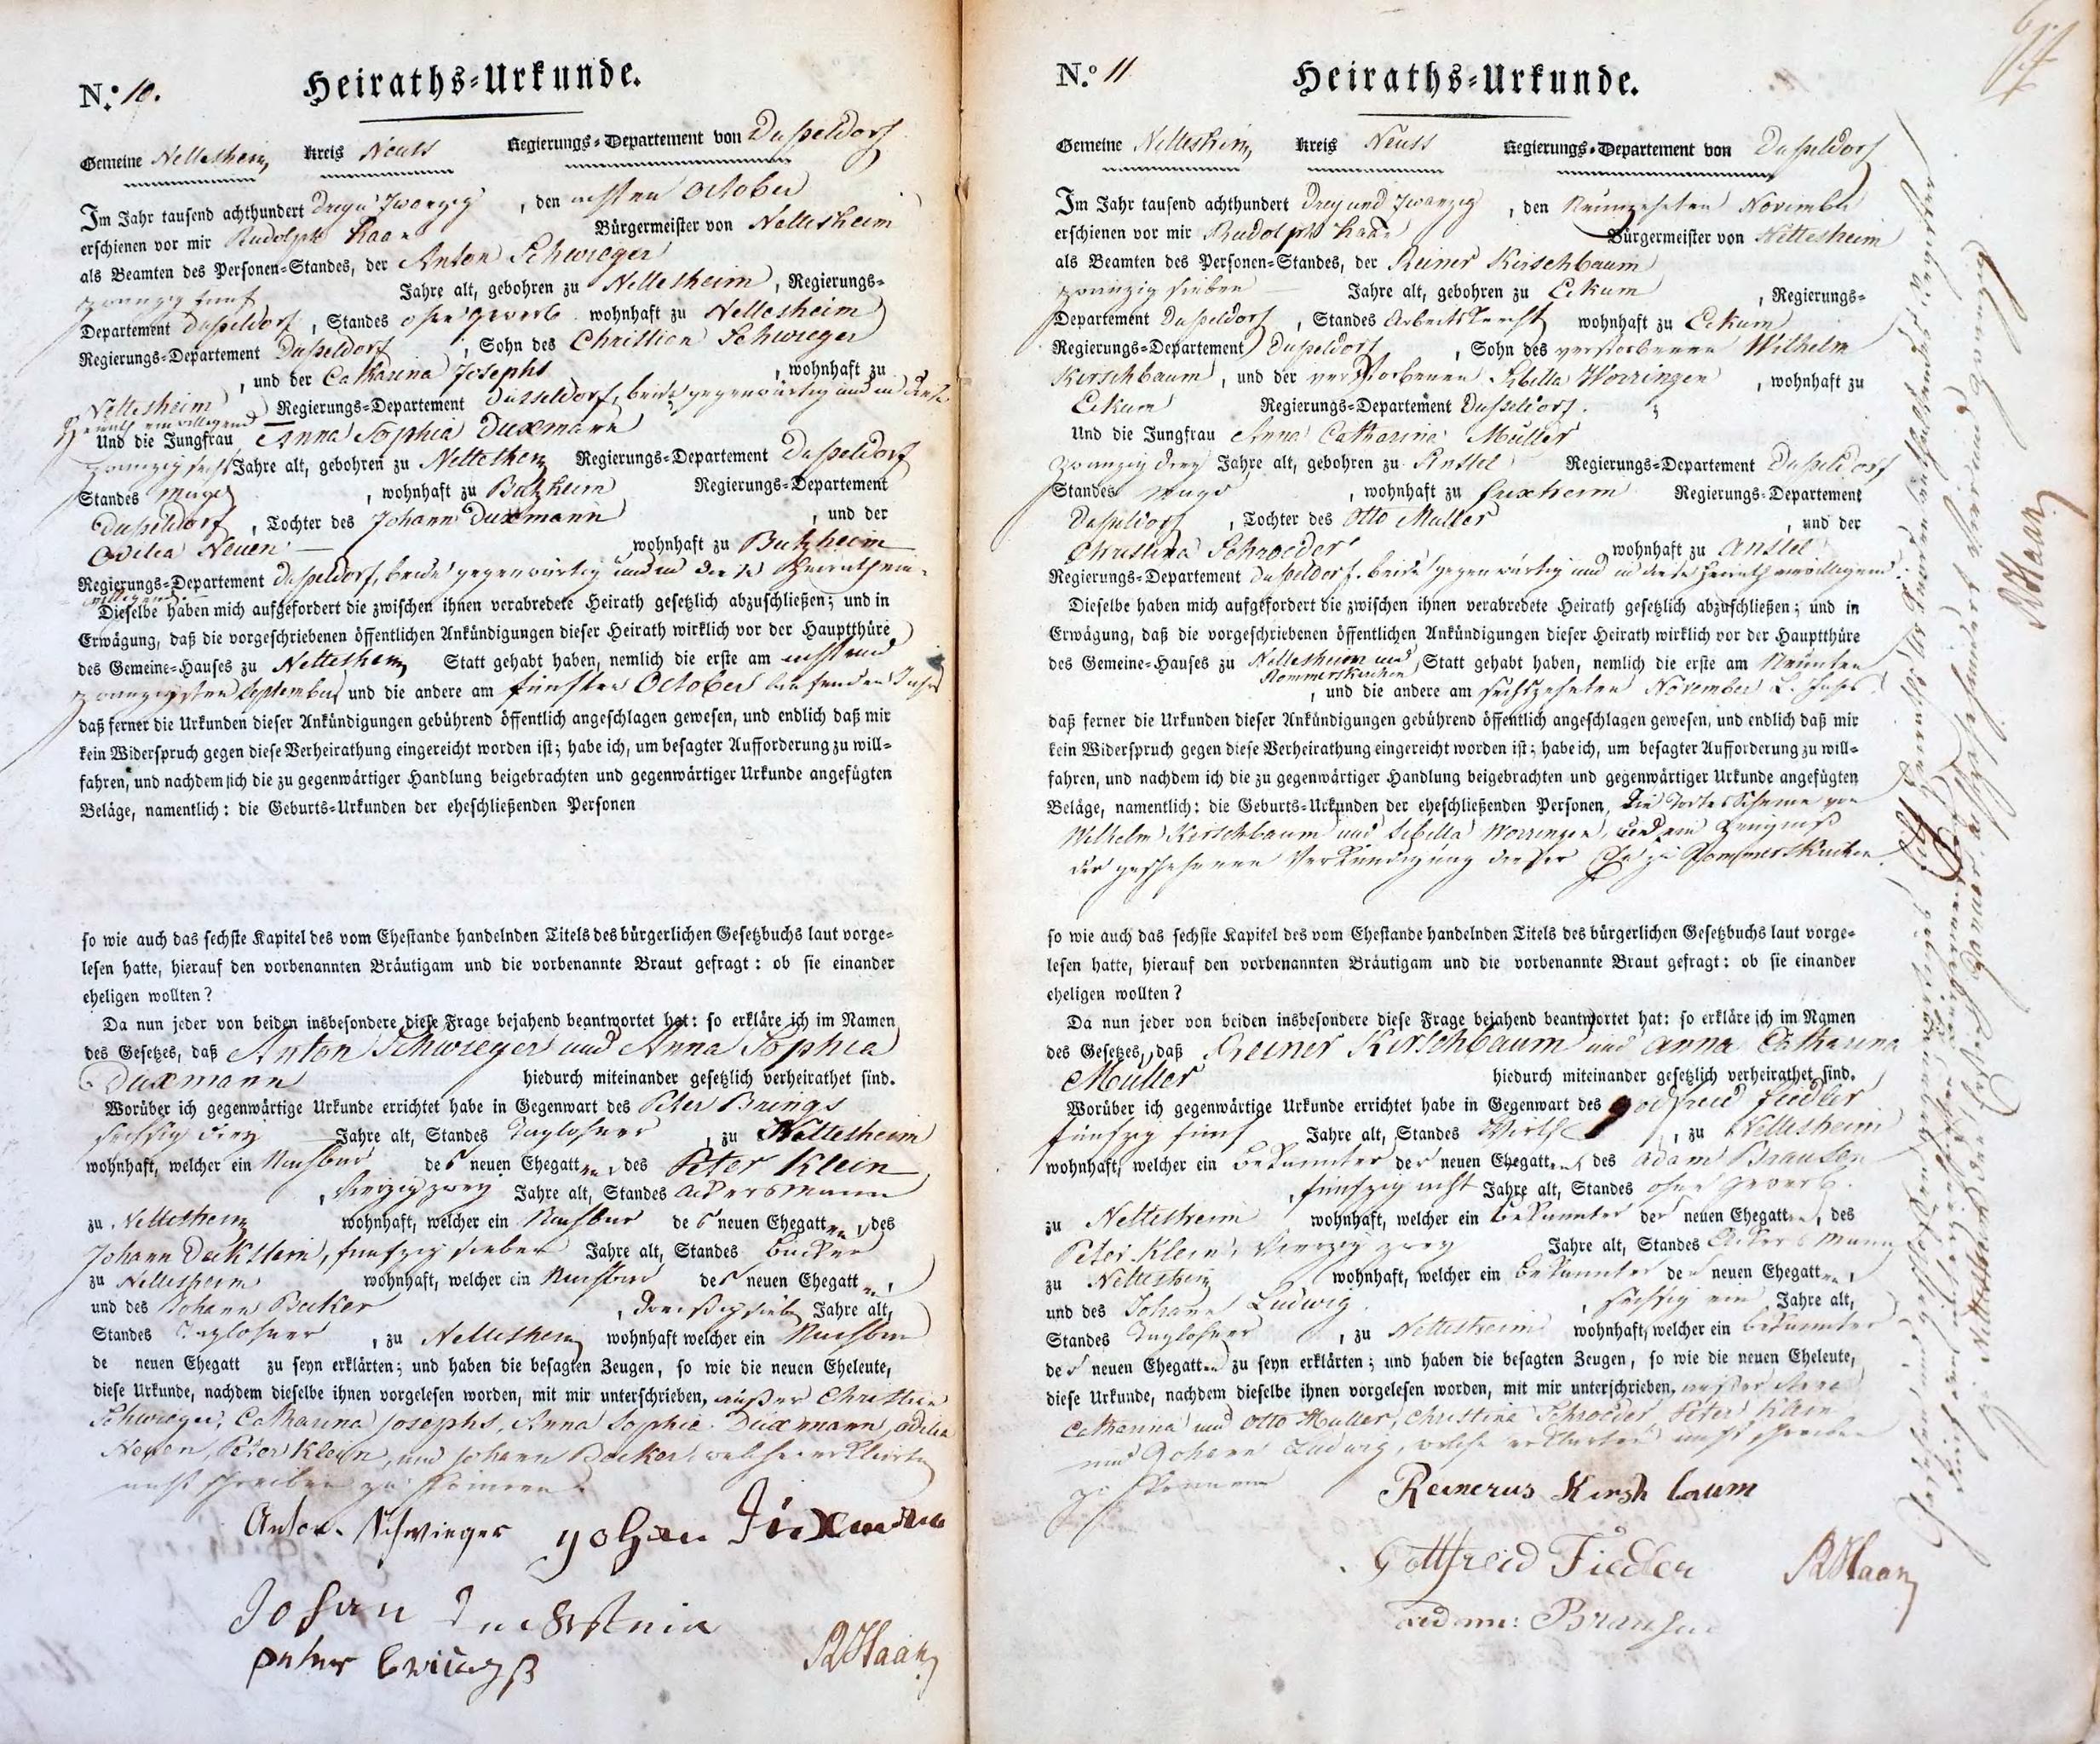 N.º 10.
Heiraths-Urkunde.
Gemeine Nettesheim Kreis Neuss Regierungs-Departement von Dußeldorf
Im Jahr tausend achthundert Drey u Zwanzig, den achten October
erschienen vor mir Rudolph Haan Bürgermeister von Nettesheim
als Beamten des Personen-Standes, der Anton Schwieger
zwanzig fünf Jahre alt, gebohren zu Nettesheim, Regierungs-
Departement Dußeldorf, Standes ohne Gewerb wohnhaft zu Nettesheim
Regierungs-Departement Dußeldorf, Sohn des Christian Schwieger
, und der Catharina Josephs, wohnhaft zu
Nettesheim Regierungs-Departement Dusseldorf, beide gegenwärtig und in diese
Heirath einwilligend
Und die Jungfrau Anna Sophia Duxmann
zwanzig sechs Jahre alt, gebohren zu Nettesheim Regierungs-Departement Dußeldorf
Standes Magd, wohnhaft zu Butzheim Regierungs-Departement
Dußeldorf, Tochter des Johann Duxmann, und der
Odilia Neuen wohnhaft zu Butzheim
Regierungs-Departement Dußeldorf, beide gegenwärtig und in diese Heirath ein-
willigend.
Dieselbe haben mich aufgefordert die zwischen ihnen verabredete Heirath gesetzlich abzuschließen; und in
Erwägung, daß die vorgeschriebenen öffentlichen Ankündigungen dieser Heirath wirklich vor der Hauptthüre
des Gemeine-Hauses zu Nettesheim Statt gehabt haben, nemlich die erste am acht und
zwanzigsten September und die andere am fünften October laufenden Jahrs
daß ferner die Urkunden dieser Ankündigungen gebührend öffentlich angeschlagen gewesen, und endlich daß mir
kein Widerspruch gegen diese Verheirathung eingereicht worden ist; habe ich, um besagter Aufforderung zu will-
fahren, und nachdem ich die zu gegenwärtiger Handlung beigebrachten und gegenwärtiger Urkunde angefügten
Beläge, namentlich: die Geburts-Urkunden der eheschließenden Personen
so wie auch das sechste Kapitel des vom Ehestande handelnden Titels des bürgerlichen Gesetzbuchs laut vorge-
lesen hatte, hierauf den vorbenannten Bräutigam und die vorbenannte Braut gefragt: ob sie einander
eheligen wollten?
Da nun jeder von beiden insbesondere diese Frage bejahend beantwortet hat: so erkläre ich im Namen
des Gesetzes, daß Anton Schwieger und Anna Sophia
Duxmann hiedurch miteinander gesetzlich verheirathet sind.
Worüber ich gegenwärtige Urkunde errichtet habe in Gegenwart des Peter Brings
sechsig drey Jahre alt, Standes Taglohner, zu Nettesheim
wohnhaft, welcher ein Nachbar der neuen Ehegatten, des Peter Klein
, vierzig zwey Jahre alt, Standes Ackersmann
zu Nettesheim wohnhaft, welcher ein Nachbar der neuen Ehegatten, des
Johann Deckstein, funfzig sieben Jahre alt, Standes Bäcker
zu Nettesheim wohnhaft, welcher ein Nachbar der neuen Ehegatten,
und des Johann Becker, dreißig sieben Jahre alt,
Standes Taglohner, zu Nettesheim wohnhaft welcher ein Nachbar
de neuen Ehegatt zu seyn erklärten; und haben die besagten Zeugen, so wie die neuen Eheleute,
diese Urkunde, nachdem dieselbe ihnen vorgelesen worden, mit mir unterschrieben, außer Christian
Schwieger, Catharina Josephs, Anna Sophia Duxmann, Odilia
Neuen, Peter Klein, und Johann Becker, welche erklärten
nicht schreiben zu können.
Anton Schwieger Johan Düxmann
Johan Deckstein
peter brings
RHaan
N.º 11
Heiraths-Urkunde.
Gemeine Nettesheim Kreis Neuss Regierungs-Departement von Dußeldorf
Im Jahr tausend achthundert Drey und Zwanzig, den Neunzehnten November
erschienen vor mir Rudolph Haan Bürgermeister von Nettesheim
als Beamten des Personen-Standes, der Reiner Kirschbaum
zwanzig sieben Jahre alt, gebohren zu Eckum, Regierungs-
Departement Dußeldorf, Standes Arbeitsknecht wohnhaft zu Eckum
Regierungs-Departement Dußeldorf, Sohn des verstorbenen Wilhelm
Kirschbaum, und der verstorbenen Sibilla Worringen, wohnhaft zu
Eckum Regierungs-Departement Dusseldorf.
Und die Jungfrau Anna Catharina Müller
zwanzig drey Jahre alt, gebohren zu Anstel Regierungs-Departement Dußeldorf
Standes Magd, wohnhaft zu Frixheim Regierungs-Departement
Dußeldorf, Tochter des Otto Muller, und der
Christina Schroeder wohnhaft zu Anstel
Regierungs-Departement Dußeldorf. beide gegenwärtig und in diese Heirath einwilligend.
Dieselbe haben mich aufgefordert die zwischen ihnen verabredete Heirath gesetzlich abzuschließen; und in
Erwägung, daß die vorgeschriebenen öffentlichen Ankündigungen dieser Heirath wirklich vor der Hauptthüre
des Gemeine-Hauses zu Nettesheim und Statt gehabt haben, nemlich die erste am Neunten
Rommerskirchen, und die andere am sechszehnten November l. Jahrs.
daß ferner die Urkunden dieser Ankündigungen gebührend öffentlich angeschlagen gewesen, und endlich daß mir
kein Widerspruch gegen diese Verheirathung eingereicht worden ist; habe ich, um besagter Aufforderung zu will-
fahren, und nachdem ich die zu gegenwärtiger Handlung beigebrachten und gegenwärtiger Urkunde angefügten
Beläge, namentlich: die Geburts-Urkunden der eheschließenden Personen, die Todtesscheine von
Wilhelm Kirschbaum und Sibilla Worringen, und ein Zeugniß
der geschehenen Verkündigung dieser Ehe zu Rommerskirchen.
so wie auch das sechste Kapitel des vom Ehestande handelnden Titels des bürgerlichen Gesetzbuchs laut vorge-
lesen hatte, hierauf den vorbenannten Bräutigam und die vorbenannte Braut gefragt: ob sie einander
eheligen wollten?
Da nun jeder von beiden insbesondere diese Frage bejahend beantwortet hat: so erkläre ich im Namen
des Gesetzes, daß Reiner Kirschbaum und Anna Catharina
Müller hiedurch miteinander gesetzlich verheirathet sind.
Worüber ich gegenwärtige Urkunde errichtet habe in Gegenwart des Godfried Fiedler
fünfzig fünf Jahre alt, Standes Wirth, zu Nettesheim
wohnhaft, welcher ein Bekannter der neuen Ehegatten, des Adam Brausen
, fünfzig acht Jahre alt, Standes ohne Gewerb.
zu Nettesheim wohnhaft, welcher ein Bekannter der neuen Ehegatten, des
Peter Klein, vierzig zwey Jahre alt, Standes Ackersmann
zu Nettesheim wohnhaft, welcher ein Bekannter der neuen Ehegatten,
und des Johann Ludwig, sechsig ein Jahre alt,
Standes Taglohner, zu Nettesheim wohnhaft, welcher ein Bekannter
der neuen Ehegatten zu seyn erklärten; und haben die besagten Zeugen, so wie die neuen Eheleute,
diese Urkunde, nachdem dieselbe ihnen vorgelesen worden, mit mir unterschrieben, außer Anna
Catharina und Otto Muller, Christina Schroeder, Peter Klein
und Johann Ludwig, welche erklärten nicht schreiben
zu können
Reinerus Kirsh baum
Gottfreid Fiedler RHaan
adam: Brausen
RHaan